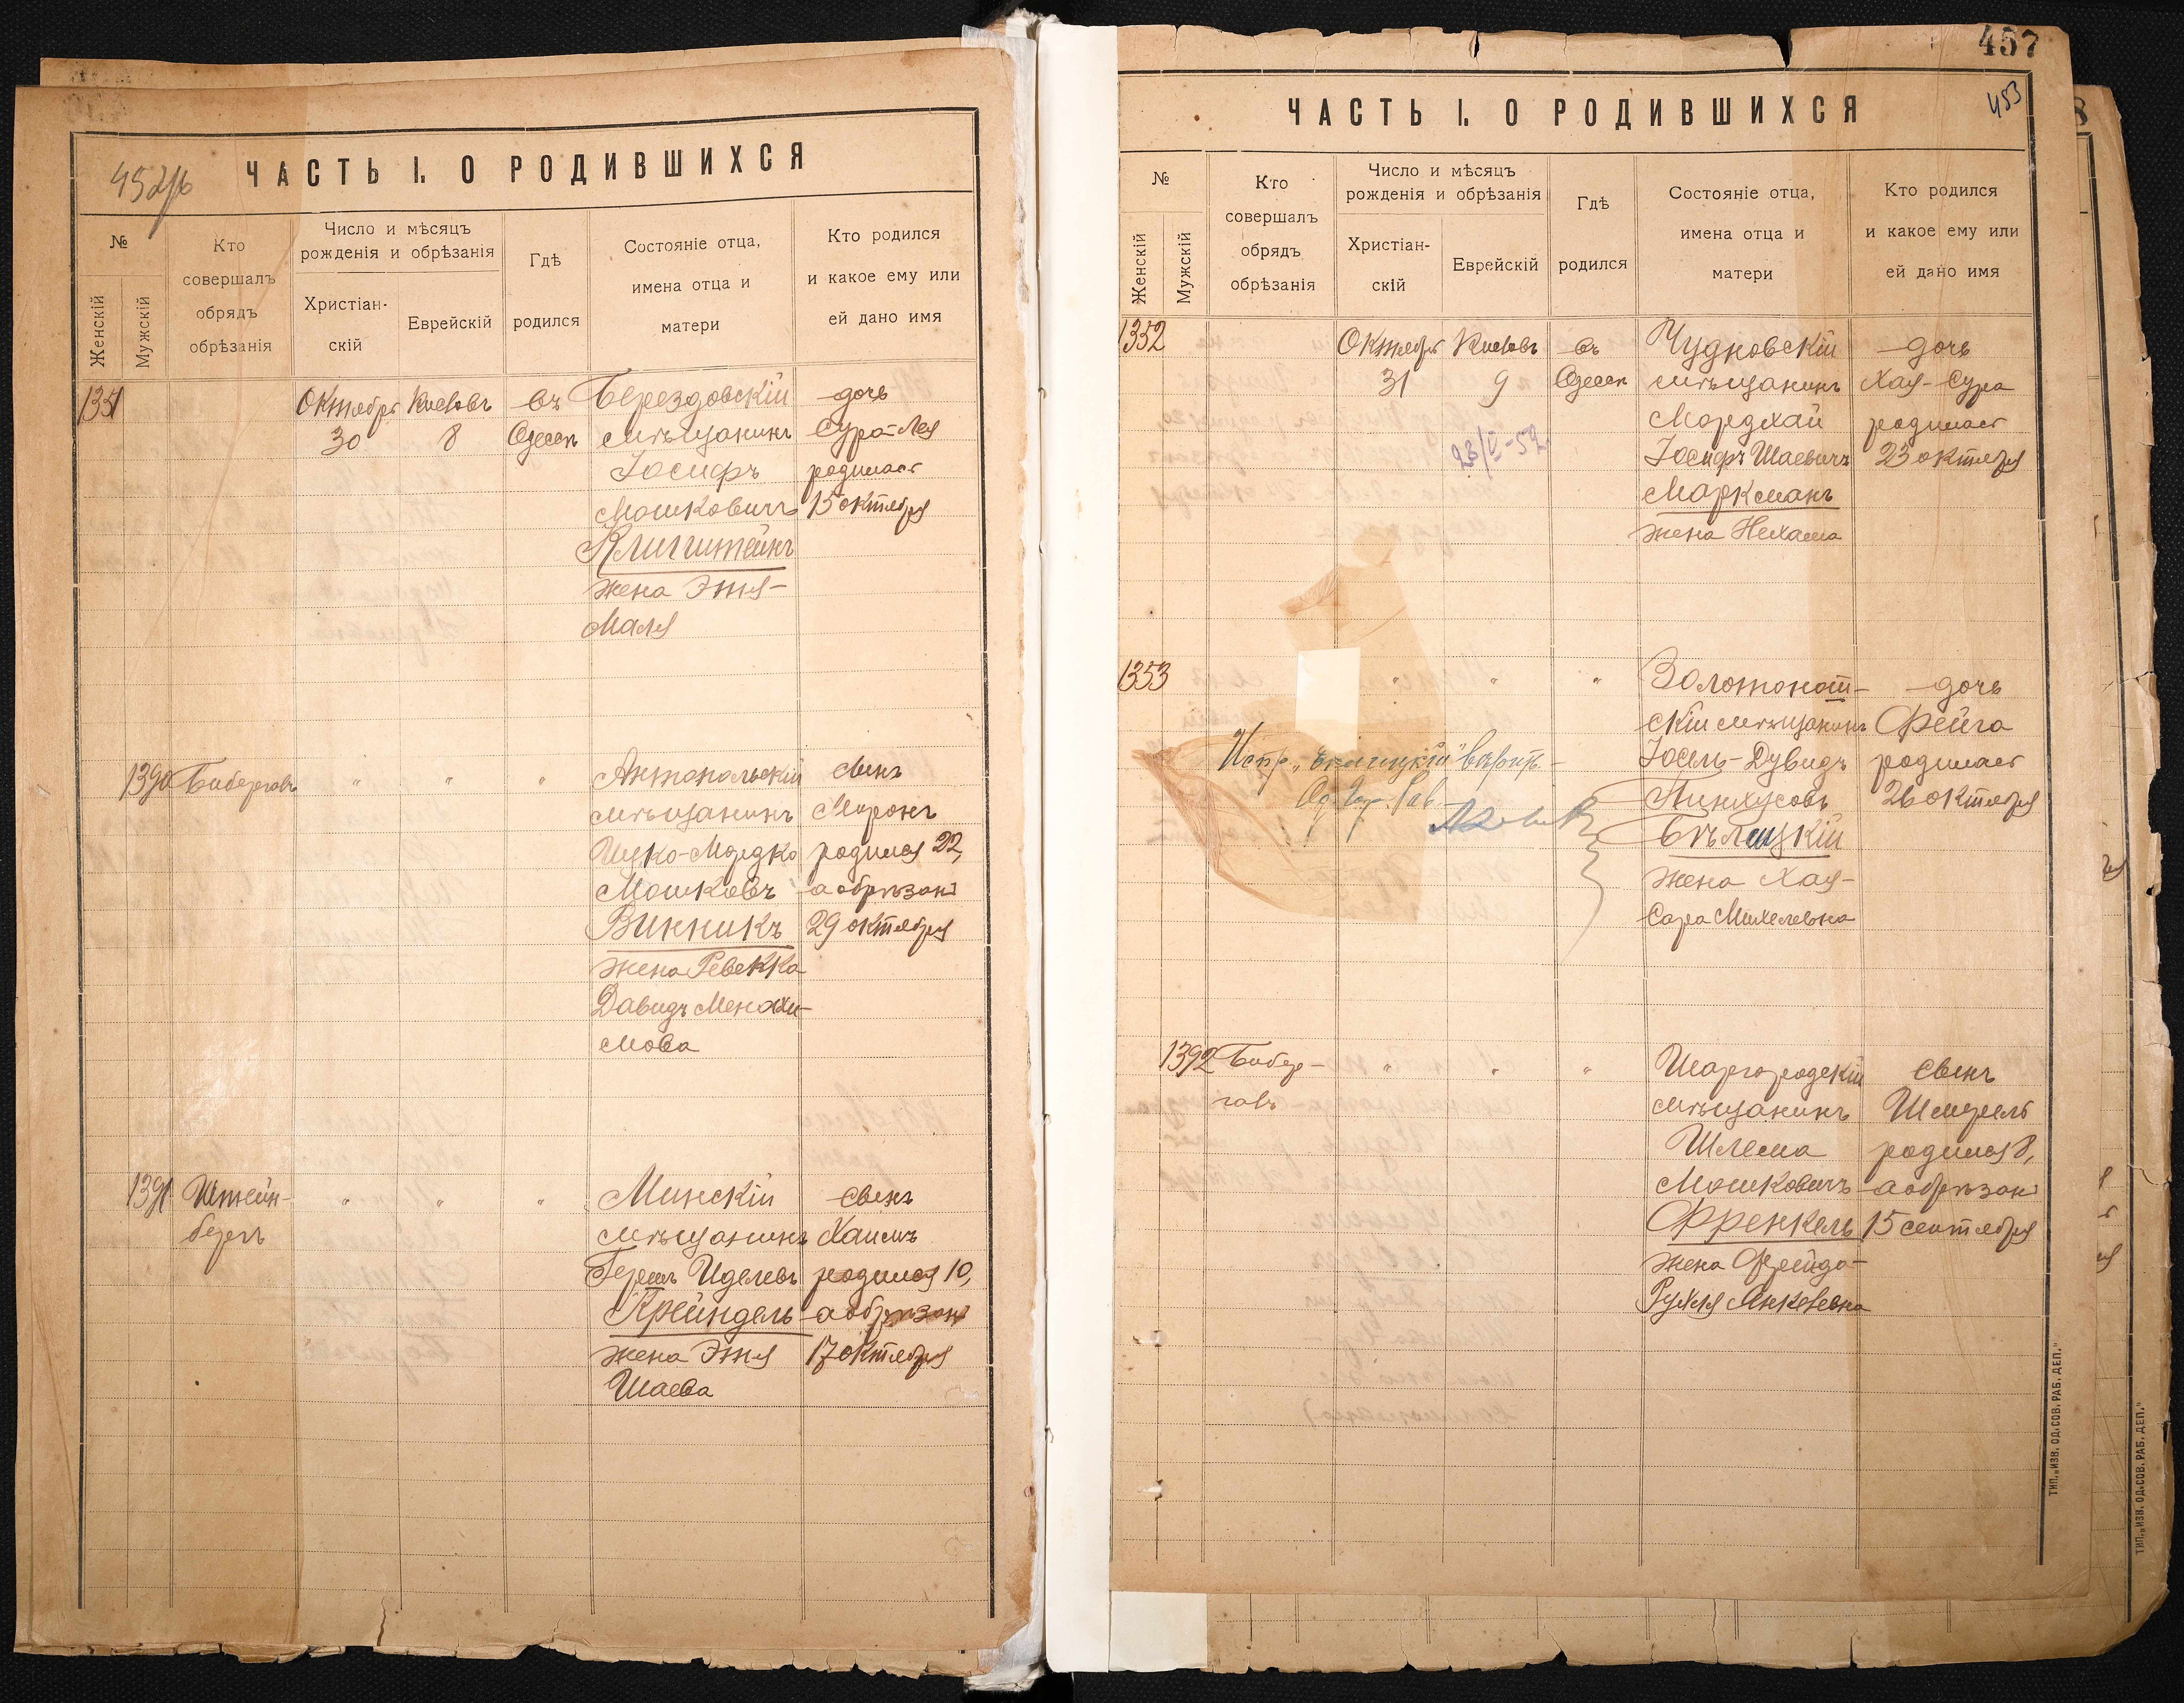 452об
ЧАСТЬ I. О РОДИВШИХСЯ
№
Женскій
Мужскій
Кто
совершалъ
обрядъ
обрѣзанія
Число и мѣсяцъ
рожденія и обрѣзанія
Христіан-
скій
Еврейскій
Гдѣ
родился
Состояніе отца,
имена отца и
матери
Кто родился
и какое ему или
ей дано имя
1351 Октября Кислевъ въ Берездовскій дочь
30 8 Одессѣ мѣщанинъ Сура-Лея
Іосифъ родилась
Мошковичъ 15 октября
Клигштейнъ
жена Этя-
Маля
1390 Бибергалъ " " " Антопольскій сынъ
мѣщанинъ Миронъ
Ицко-Мордко родился 22,
Мошковъ а обрѣзанъ
Винникъ 29 октября
жена Ревекка
Давидъ Менахи-
мова
1391 Штейн- " " " Минскій сынъ
бергъ мѣщанинъ Хаимъ
Гершъ Иделевъ родился 10,
Крейндель а обрѣзанъ
жена Этя 17 октября
Шаева
457
453
ЧАСТЬ I. О РОДИВШИХСЯ
№
Женскій
Мужскій
Кто
совершалъ
обрядъ
обрѣзанія
Число и мѣсяцъ
рожденія и обрѣзанія
Христіан-
скій
Еврейскій
Гдѣ
родился
Состояніе отца,
имена отца и
матери
Кто родился
и какое ему или
ей дано имя
1352 Октября Кислевъ въ Чудновскій дочь
31 9 Одессѣ мѣщанинъ Хая-Сура
Мордхай родилась
Іосифъ Шаевичъ 23 октября
Марксманъ
жена Нехама
1353 " " " Золотонош- дочь
скій мѣщанинъ Фейга
Іосель-Дувидъ родилась
Пинхусовъ 26 октября
Бѣлицкій
жена Хая-
Сара Михелевна
Испр. "Бѣлицкій" вѣрить
Од. Гор. Рав.
1392 Бибер- " " " Шаргородскій сынъ
галъ мѣщанинъ Шмуель
Шлема родился 8,
Мошковичъ а обрѣзанъ
Френкель 15 сентября
жена Фрейда-
Рухля Янкелевна
ТИП. „ИЗВ. ОД. СОВ. РАБ. ДЕП."
ТИП. „ИЗВ. ОД. СОВ. РАБ. ДЕП."